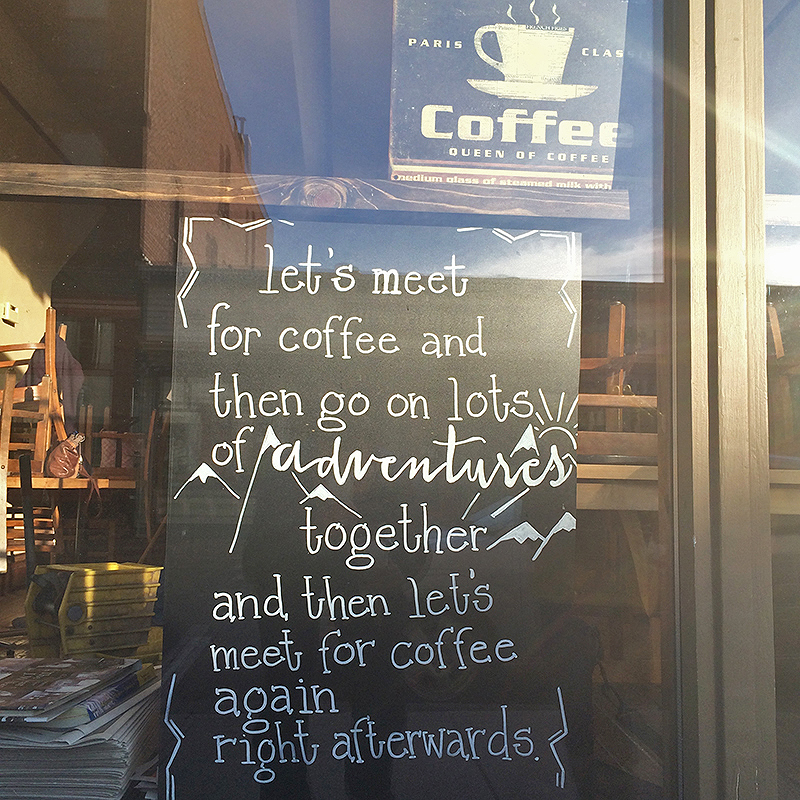 PARIS CLAS
Coffee
QUEEN OF COFFEE
medium glass of steamed milk with
let's meet
for coffee and
then go on lots
of adventures
together
and then let's
meet for coffee
again
right afterwards.